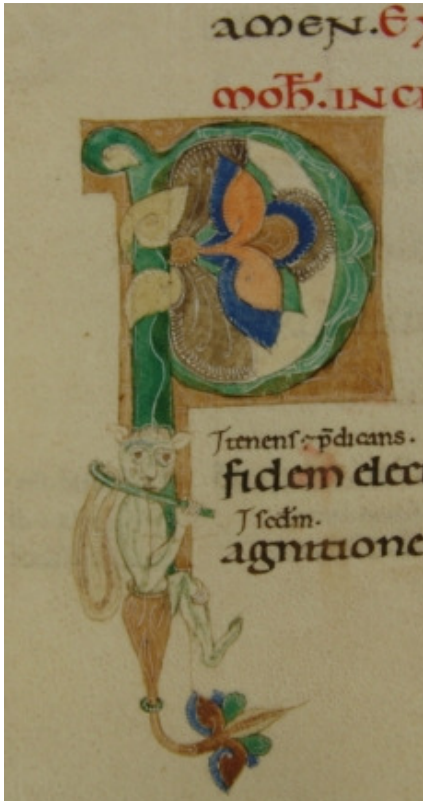 AMEN.EX
moħ.INCI
P
⁊ tenens ⁊ p̄dicans.
fidem elec
agnitione